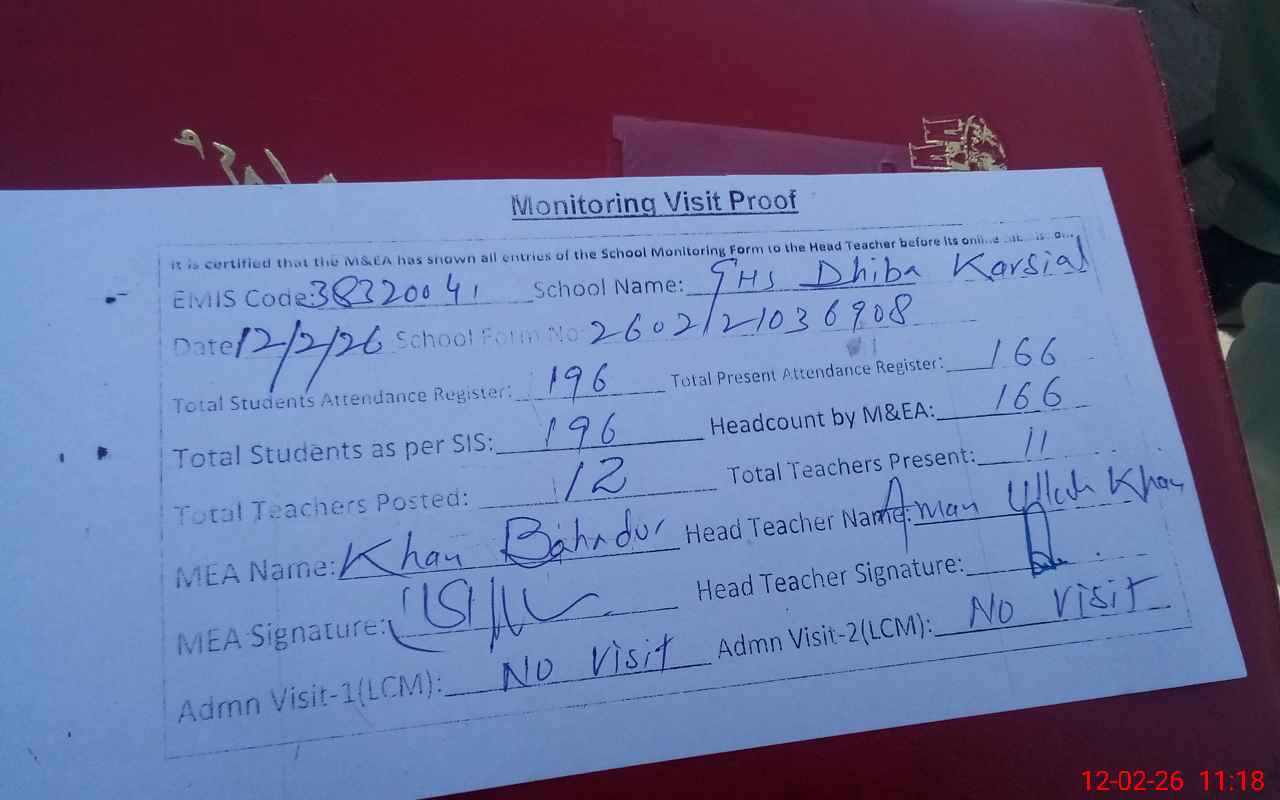 Monitoring Visit Proof
It is certified that the M&EA has shown all entries of the School Monitoring Form to the Head Teacher before its online
EMIS Code: 38320041 School Name: GHS Dhiba Karsial
Date 12/2/26 School Form No: 2602121036908
Total Students Attendance Register: 196 Total Present Attendance Register: 166
Total Students as per SIS: 196 Headcount by M&EA: 166
Total Teachers Posted: 12 Total Teachers Present: 11
MEA Name: Khan Bahadur Head Teacher Name: Aman Ullah Khan
MEA Signature: Head Teacher Signature:
Admn Visit-1(LCM): No visit Admn Visit-2(LCM): No visit
12-02-26 11:18